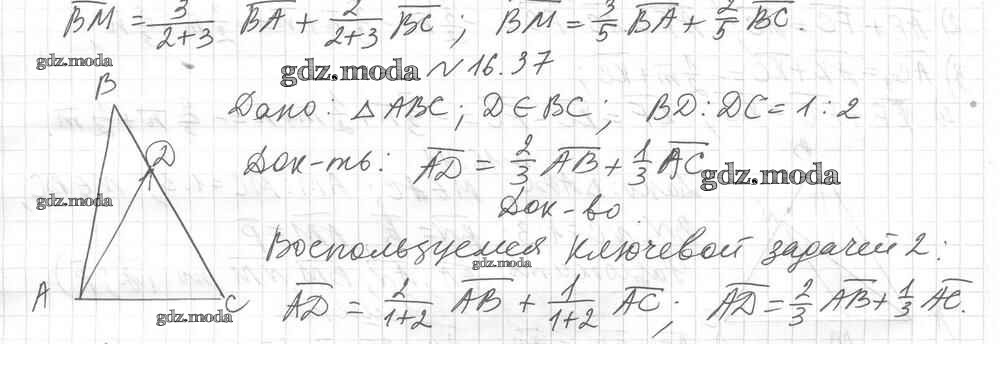 BM = 3/(2+3) BA + 2/(2+3) BC ; BM = 3/5 BA + 2/5 BC.
gdz.moda
gdz.moda №16.37
B
Дано: △ABC; D∈BC; BD:DC=1:2
D
Док-ть: AD = 2/3 AB + 1/3 AC
gdz.moda
gdz.moda
Док-во.
Воспользуемся ключевой задачей 2:
gdz.moda
A
C
AD = 2/(1+2) AB + 1/(1+2) AC; AD = 2/3 AB + 1/3 AC.
gdz.moda